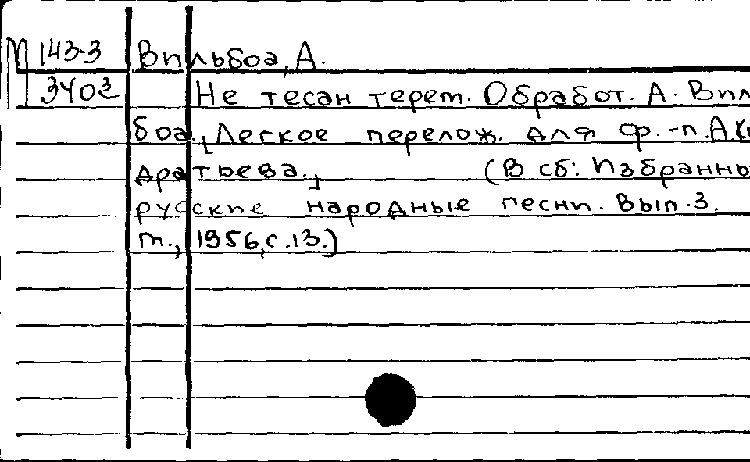 М 143-3 Вильбоа, А.
3402 Не тесан терем. Обработ. А. Вил
боа. Легкое перелож. для ф.-п. А. К
дратьева. (В сб: Избранны
русские народные песни. Вып. 3.
м., 1956, с. 13.)